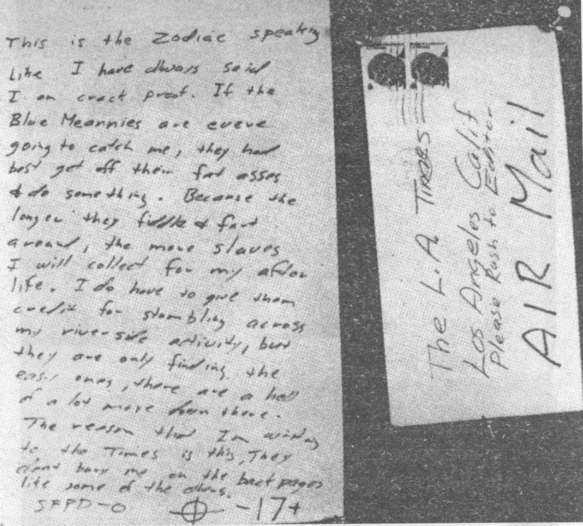 This is the Zodiac speaking
Like I have always said
I am crack proof. If the
Blue Meannies are evere
going to catch me, they had
best get off their fat asses
& do something. Because the
longer they fiddle & fart
around, the more slaves
I will collect for my after
life. I do have to give them
credit for stumbling across
my riverside activity, but
they are only finding the
easy ones, there are a hell
of a lot more down there.
The reason that I'm writing
to the Times is this, They
don't bury me on the back pages
like some of the others.
SFPD-0 -17+
The L.A. Times
Los Angeles Calif
Please Rush to Editor
AIR Mail